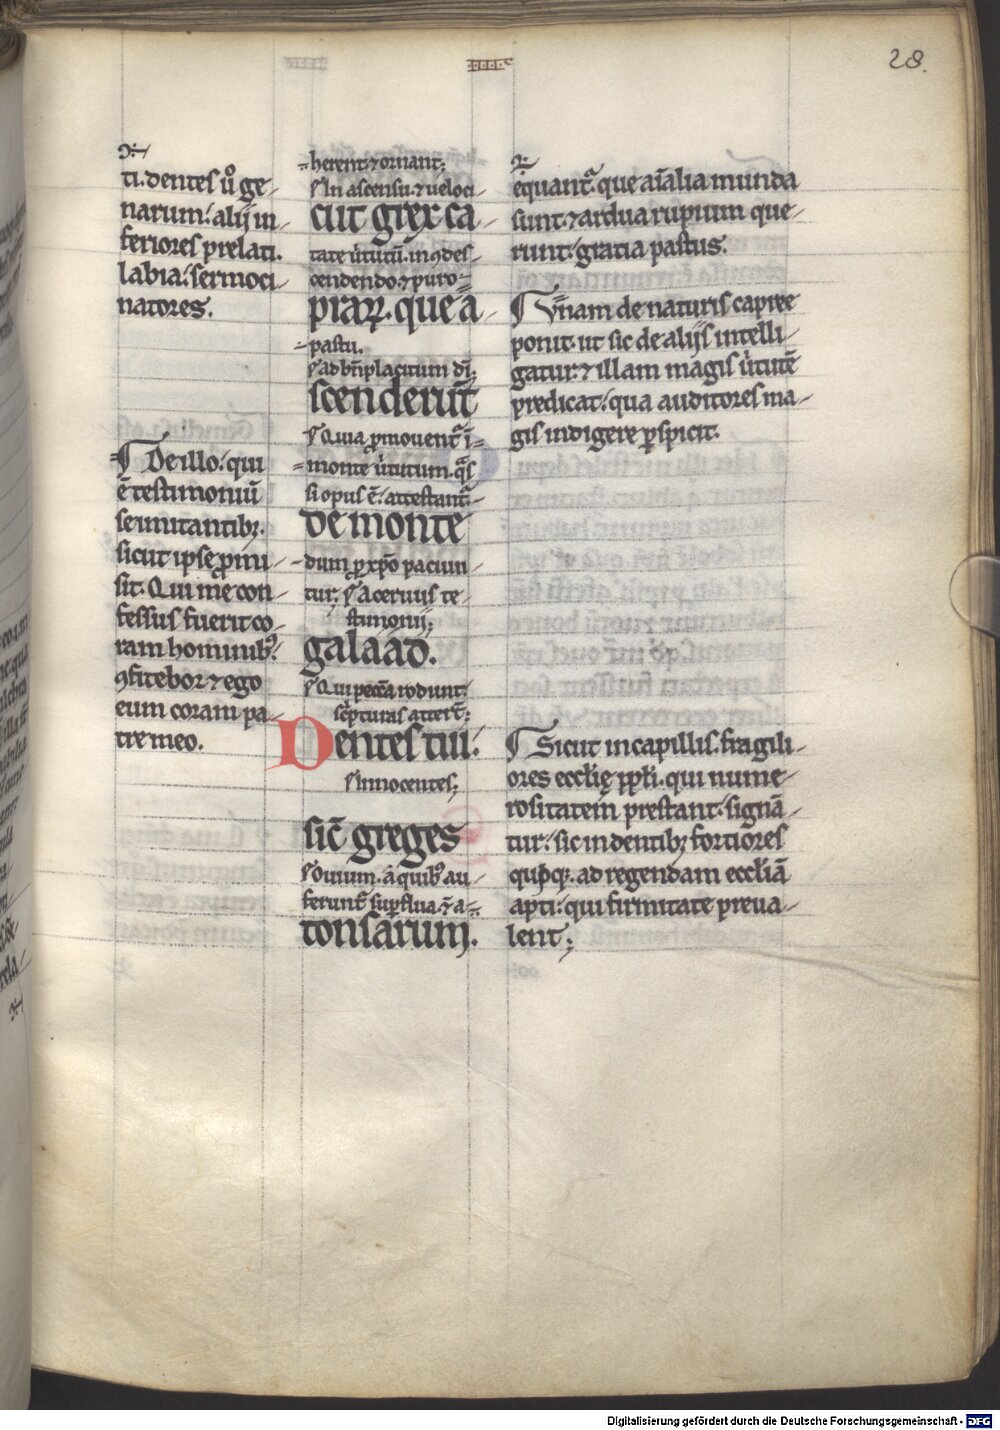 28.
ti. dentes ũo ge-
narum: alij in-
feriores prelati.
labia: sermoci-
natores.
¶ De illo: qui
ē testimoniū
se imitantibꝫ.
sicut ipse ꝓmi-
sit. Qui me con-
fessus fuerit co-
ram hominibꝰ:
ꝯfitebor ⁊ ego
eum coram pa-
tre meo.
herent ⁊ ornant:
In ascensu. ⁊ veloci-
cut grex ca
tate ũtutū. in ꝯdes-
cendendo. ⁊ puro
praꝝ. que ā-
pastu.
ad bñplacitum dī;
scenderūt
Quia ꝓmouent᷑ ī
monte ũtutum. q̄s
si opus ē: attestant᷑
de monte
dum ꝓ xp̄o paciun-
tur; Aceruus te-
stimonij;
galaād.
Qui peccā rodunt:
sc̄pturas atterē̄t;
Dentes tui:
Innocentes;
sic̄ greges
Ouium. ā quibꝰ au-
ferunt᷑ suꝑflua. ⁊ ā
tonsarum.
equant᷑. que aīalia munda
sunt. ⁊ ardua rupium que-
runt: gratia pastus.
¶ Vnam de naturis capree
ponit. ut sic de alijs intelli-
gatur: ⁊ illam magis ũtutē
predicat: qua auditores ma-
gis indigere ꝑspicit.
¶ Sicut in capillis. fragili-
ores ecclię ppl̄i. qui nume-
rositatem prestant: signā-
tur: sic in dentibꝫ fortiores
quiqꝫ. ad regendam eccliā
apti: qui firmitate preua-
lent;
Digitalisierung gefördert durch die Deutsche Forschungsgemeinschaft - DFG